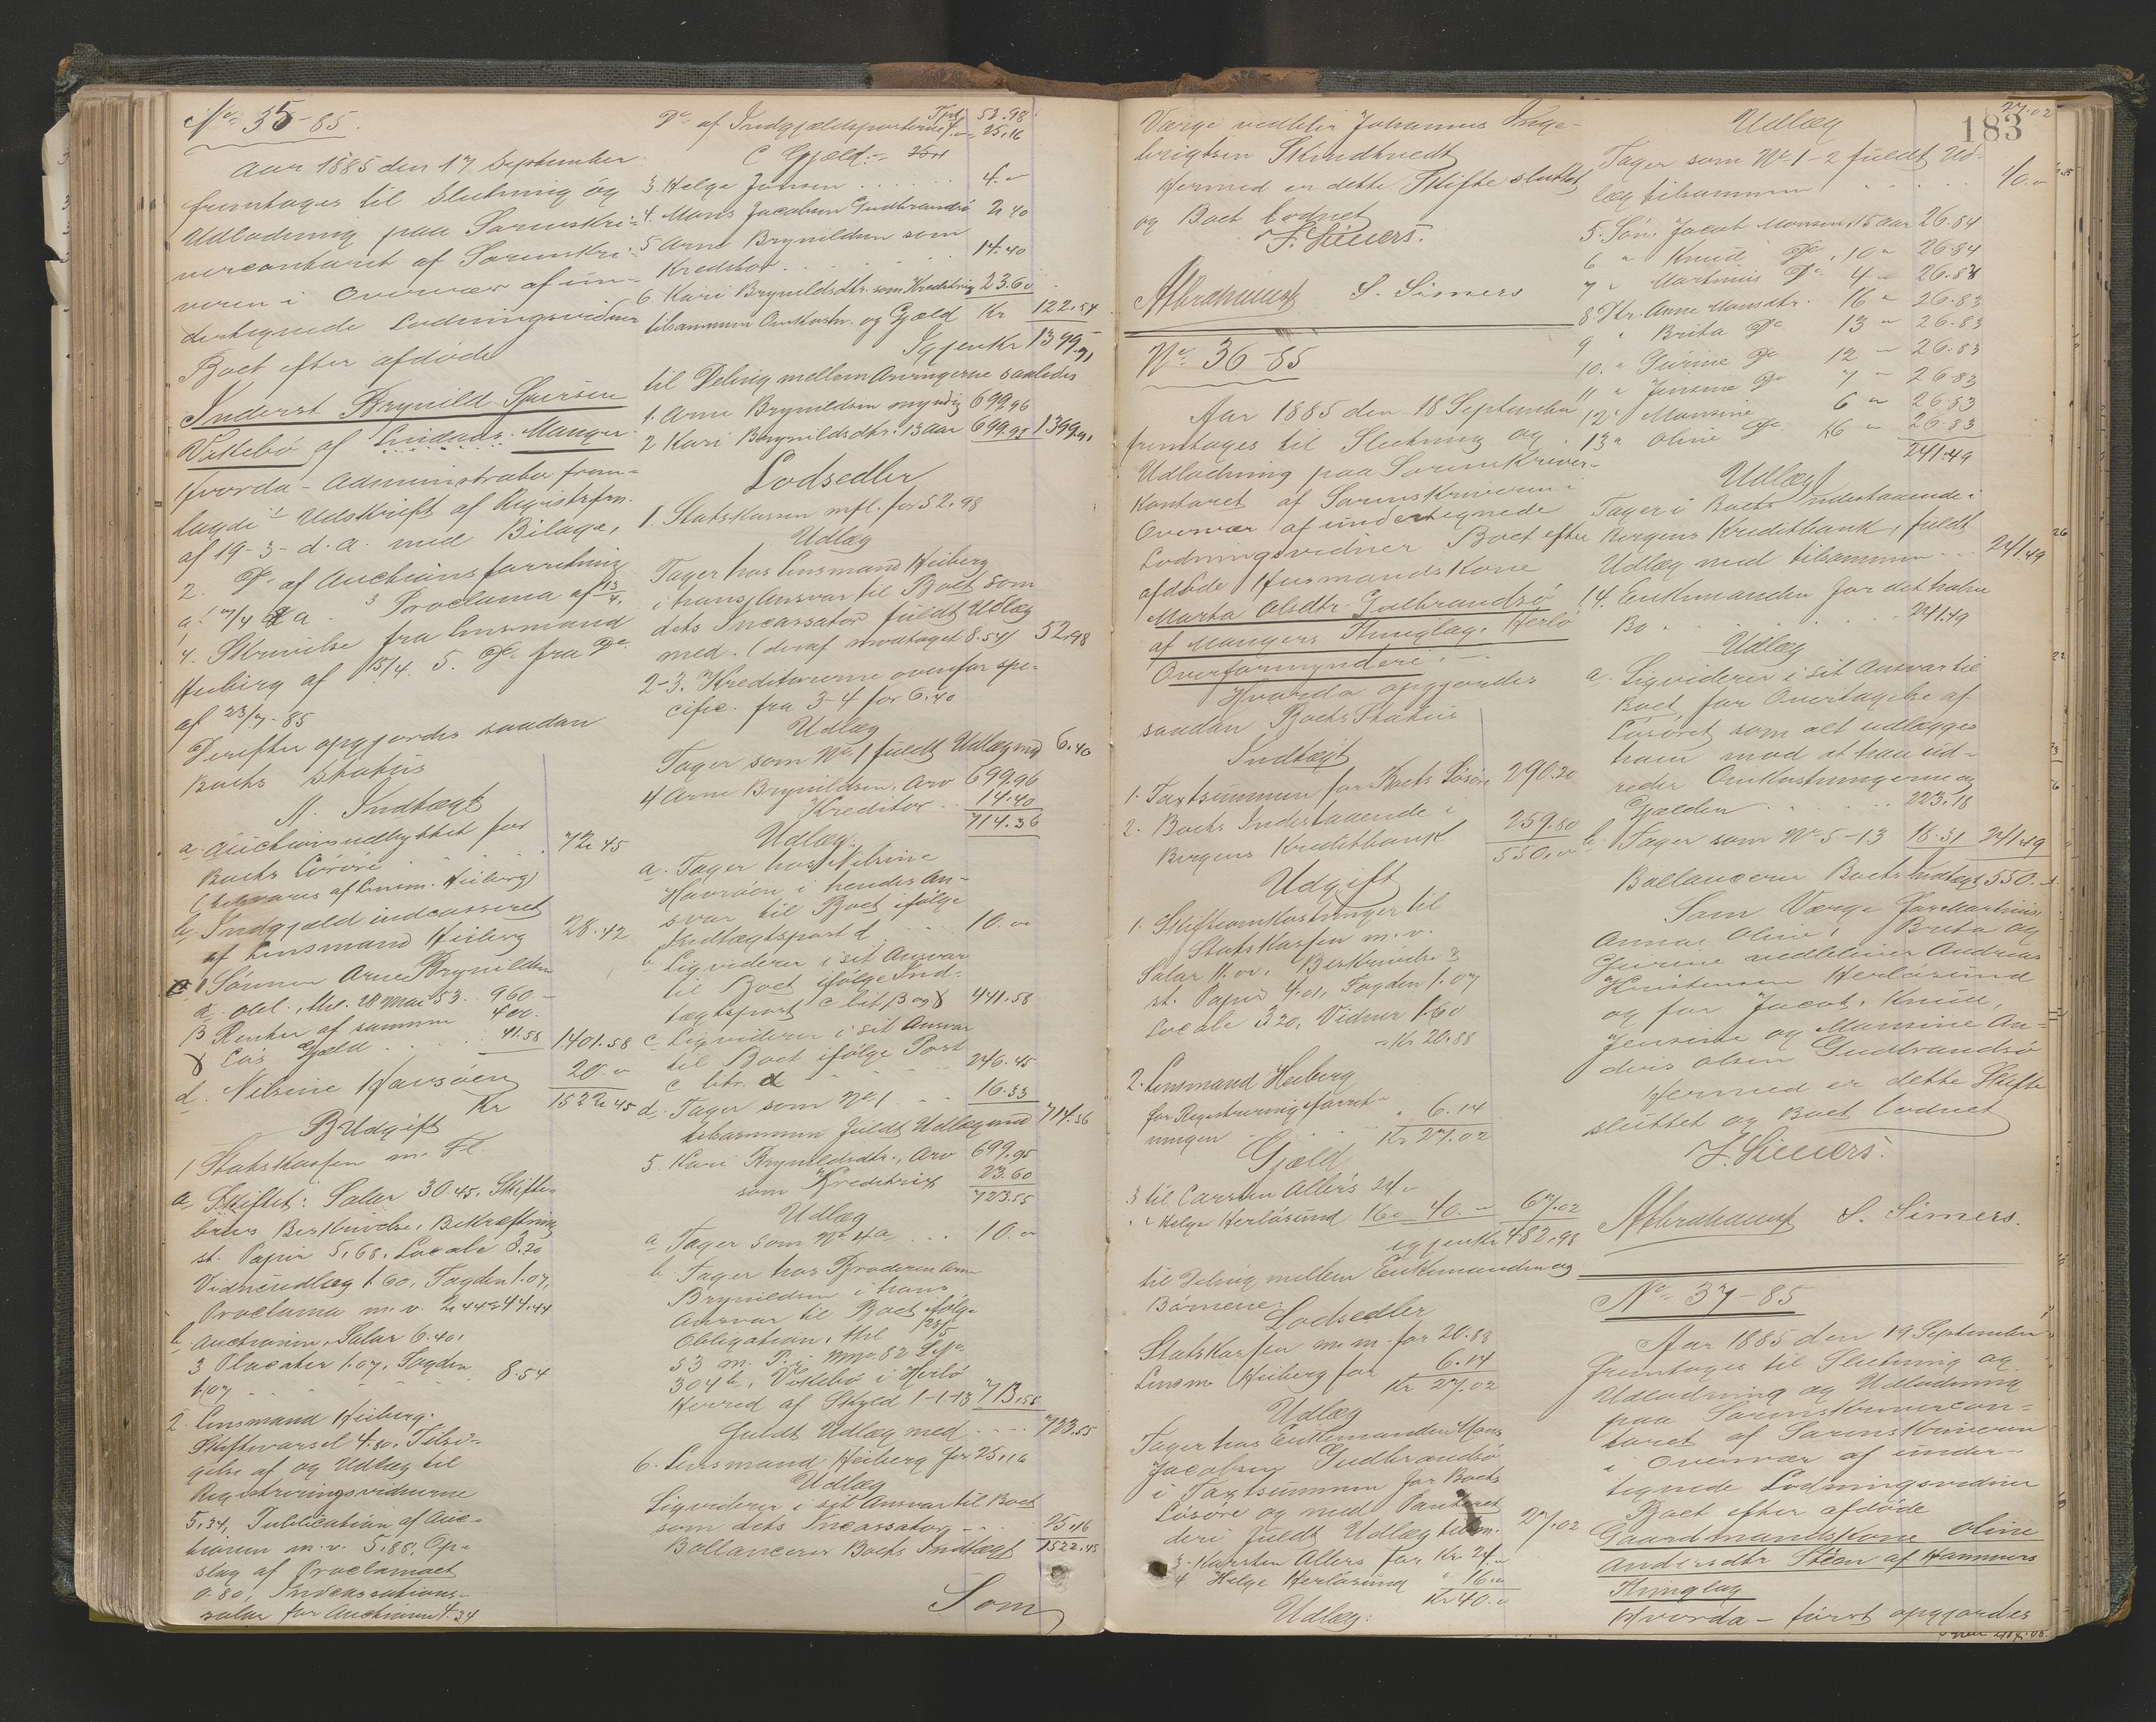 No 35-85.
Aar 1885 den 17 September
fremtages til Slutning og
Udlodning paa Sorenskri-
vercontoret af Sorenskri-
veren i Overvær af un-
dertegnede Lodningsvidner
Boet efter afdøde
Inderst Brynild Sjursen
Vikebø af Lindaas. Manger.
Hvorda - Administrator frem-
lagde 1 Udskrift af Registr.frn.
af 19-3- d. a. med Bilage,
2. Do af Auctionsforretning
a! 7/4 d a. 3 Proclama af 15/4.
4. Skrivelse fra Lensmand
Heiberg af 15/4. 5. Do fra Do
af 23/7-85
Derefter opgjordes saadan
Boets Status
A. Indtægt
a. Auctionsudbyttet for
Boets Løsøre 72.45
(besvares af Lensm. Heiberg)
b. Indgjæld indcasseret
af Lensmand Heiberg 28.42
c Sønnen Arne Brynildsen
α. obl., thl. 28 Mai 53. 960 -
β Renter af samme 400.
γ Løs Gjæld 41.58 1401.58
d. Nilsine Havsøen 20.-
Kr 1522.45
B Udgift
1 Statskassen m. Fl.
a. Skiftet: Salær 30.45. Skifte-
brevs Beskrivelse, Bekræftning
st. Papir 5,68. Locale 3.20
Vidneudlæg 1.60. Fogden 1.07,
Proclama m. v. 2.44 = 44.44
b. Auctionen, Salær 6.40,
3 Placater 1.07, Fogden
1.07 8.54
2. Lensmand Heiberg.
Skiftevarsel 4.80. Tilsi-
gelse af og Udlæg til
Registreringsvidnerne
5,34, Publication af Auc-
tionen m. v. 5,88, Op-
slag af Proclamaet
0.80, Incassations-
salær for Auctionen 4.34
Tpt. 52.98
Do af Indgjældsposterne 4.- 25,16
C Gjæld.-
3. Helge Jonsen 4.-
4. Mons Jacobsen Gudbrandsø 2.40
5 Arne Brynildsen som
Kreditor 14.40
6. Kari Brynildsdtr. som Kreditrix 23.60
tilsammen Omkostn. og Gjæld Kr 122.54
Igjen Kr 1399.91
til Deling mellem Arvingerne saaledes
1. Arne Brynildsen myndig 699,96
2 Kari Brynildsdtr. 13 aar 699.95 1399.91
Lodsedler
1. Statskassen mfl. for 52.98
Udlæg
Tager hos Lensmand Heiberg
i hans Ansvar til Boet som
dets Incassator fuldt Udlæg
med. (deraf modtaget 8.54) 52.98
2-3. Kreditorerne ovenfor spe-
cific. fra 3-4 for 6.40
Udlæg
Tager som No 1 fuldt Udlæg md 6.40
4 Arne Brynildsen, Arv 699.96
Kreditor 14.40
714.36
Udlæg.
a. Tager hos Nilsine
Havsøen i hendes An-
svar til Boet ifølge
Indtægtspost d 10.-
b Ligviderer i sit Ansvar
til Boet ifølge Ind-
tægtspost c lit β og γ 441.58
c Ligviderer i sit Ansvar
til Boet ifølge Post
c litr. α 246.45
d. Tager som No 1 16.33
tilsammen fuldt Udlæg med 714.36
5. Kari Brynildsdtr., Arv 699.95
som Kreditrix 23.60
723.55
Udlæg
a Tager som No 4a 10.-
b. Tager hos Broderen Arne
Brynildsen i hans
Ansvar til Boet ifølge
Obligation, thl 28/5
53 m. P. i Mno 82 Lno
304b, Vikebø i Herlø
Herred af Skyld 1-1-13 713,55
fuldt Udlæg med 723.55
6. Lensmand Heiberg for 25,16
Udlæg
Ligviderer i sit Ansvar til Boet
som dets Incassator 25.16
Ballancerer Boets Indtægt 1522.45
Som
Værge vedblir Johannes Inge-
brigtsen Skindtvedt
Hermed er dette Skifte sluttet
og Boet lodnet
F. Siuers.
Abrahamsf S. Simers
No 36-85
Aar 1885 den 18 September
fremtages til Slutning og
Udlodning paa Sorenskriver-
kontoret af Sorenskriveren i
Overvær af undertegnede
Lodningsvidner Boet efter
afdøde Husmandskone
Marta Olsdtr. Gulbrandsø
af Mangers Thinglag. Herlø
Overformynderi. -
Hvorda opgjordes
saadan Boets Status
Indtægt
1. Taxtsummen for Boets Løsøre 290.20
2. Boets Indestaaende i
Bergens Kreditbank 259.80
550.-
Udgift
1. Skifteomkostninger til
Statskassen m. v.
Salær 11.00. Beskrivelse &
st. Papir 4.01, Fogden 1.07
Locale 3.20, Vidner 1.60
= Kr 20.88
2. Lensmand Heiberg
for Registreringsforret-
ningen " 6.14
Kr 27.02
Gjæld
3 til Carsten Allers 24.-
" " Helge Herløsund 16.- 40.- 67.02
igjen Kr 482.98
til Deling mellem Enkemanden og
Børnene.
Lodsedler
Statskassen m m for 20.88
Lensm Heiberg for 6.14
Kr 27.02
Udlæg
Tager hos Enkemanden Mons
Jacobsen Gudbrandsø
i Taxtsummen for Boets
Løsøre og med Panteret
deri fuldt Udlæg tilsm. 27.02
3- Karsten Allers for Kr 24.-
4 Helge Herløsund " 16.-
Kr 40.-
Udlæg:
27.02
183
Udlæg
Tager som No 1-2 fuldt Ud-
læg tilsammen 40.-
5. Søn. Jacob Monsen, 15 aar 26.84
6 " Knud Do, 10 " 26.84
7 " Martinus Do 4 " 26.84
8. Dtr. Anne Monsdtr. 16 " 26.83
9 " Brita Do 13 " 26.83
10. " Gurine Do 12 - 26.83
11 " Jensine Do 7 - 26.83
12 " Monsine 6 " 26.83
13 " Oline Do 16 " 26.83
241.49
Udlæg
Tager i Boets Indestaaende i
Bergens Kreditbank, fuldt
Udlæg med tilsammen 241.49
14. Enkemanden for det halve
Bo 241.49
Udlæg
a. Ligviderer i sit Ansvar til
Boet for Overtagelse af
Løsøret som alt udlægges
ham mod at han ud-
reder Omkostningerne og
Gjælden 223.18
b Tager som No 5-13 18.31 241.49
Ballancerer Boets Indtægt 550.-
Som Værge for Martinus
Anna, Oline, Brita og
Gurine vedbliver Andreas
Kristensen Herløsund
og for Jacob, Knud,
Jensine og Monsine An-
dvis Olsen Gudbrandsø
Hermed er dette Skifte
sluttet og Boet lodnet
F. Siuers.
Abrahamsf S. Simers.
No 37-85
Aar 1885 den 19 September
fremtages til Slutning og
Udlodning og Udlodning
paa Sorenskrivercon-
toret af Sorenskriveren
i Overvær af under-
tegnede Lodningsvidner
Boet efter afdøde
Gaardmandskone Oline
Andersdtr Steen af Hammers
Thinglag
Hvorda - først opgjordes